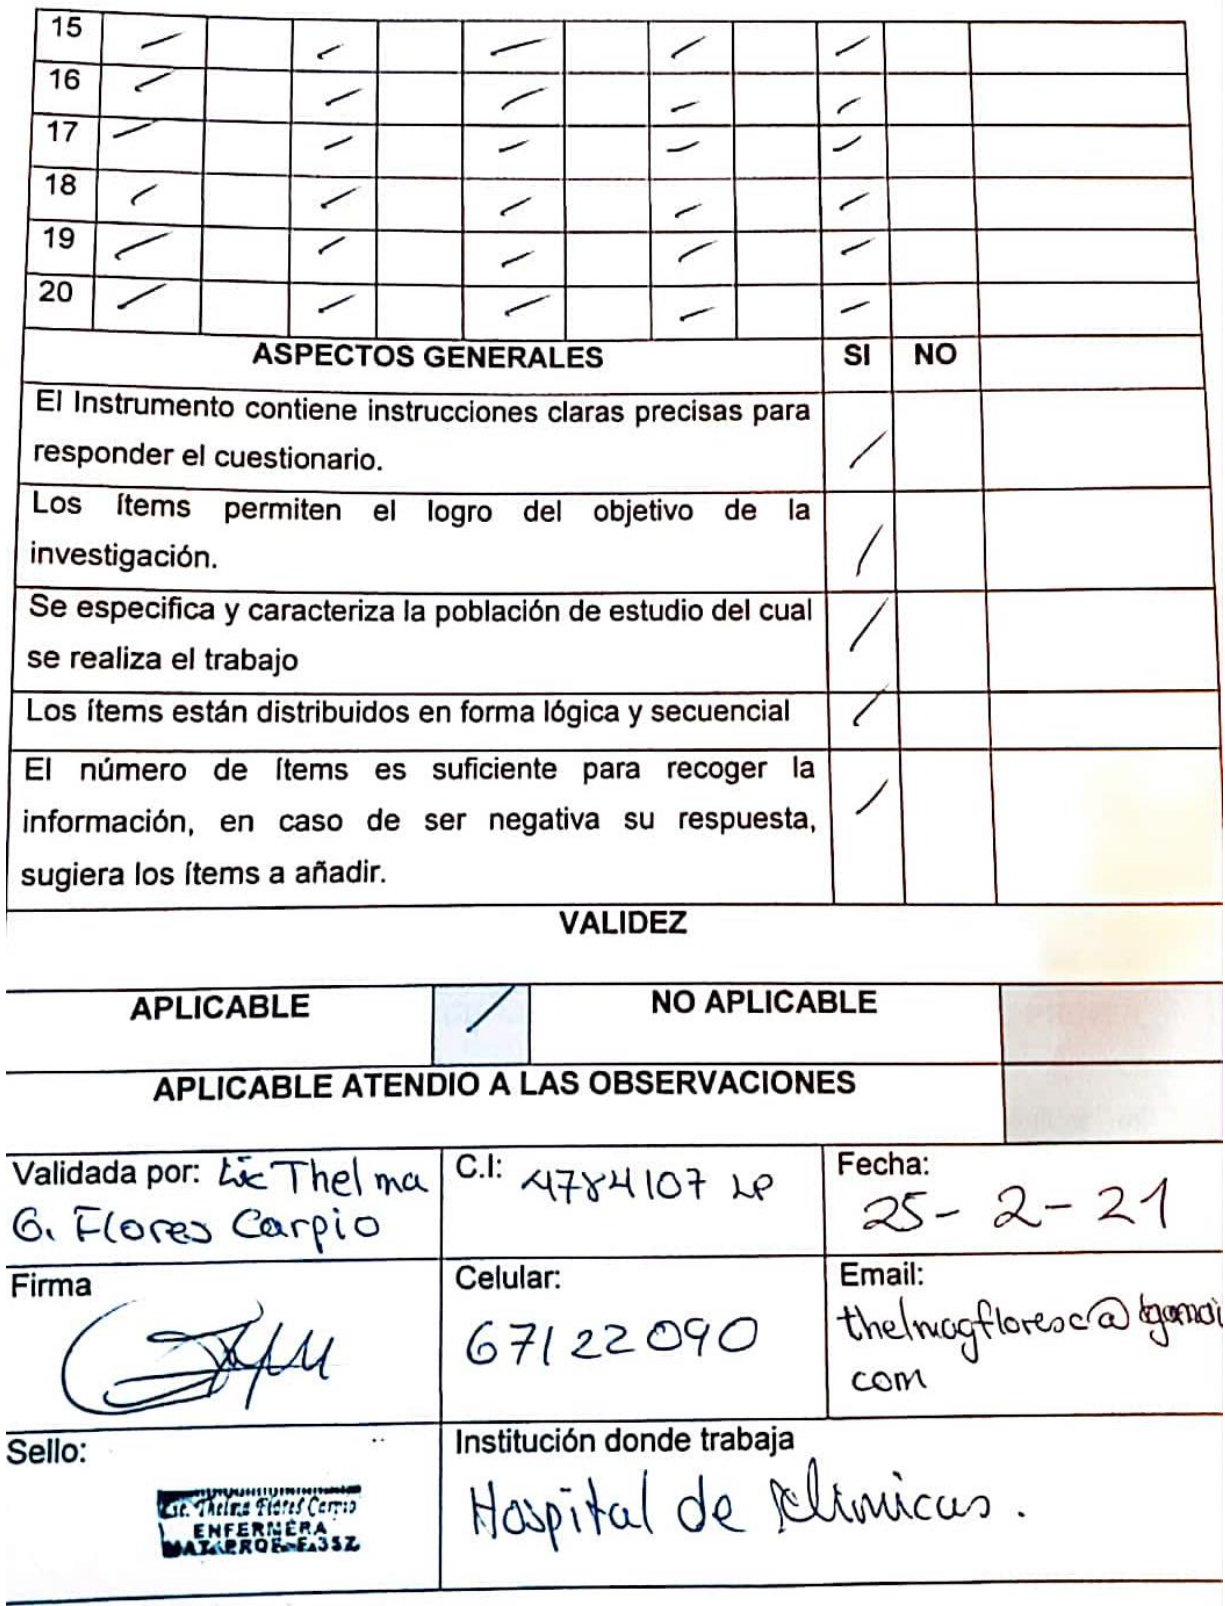 15
16
17
18
19
20
ASPECTOS GENERALES SI NO
El Instrumento contiene instrucciones claras precisas para
responder el cuestionario.
Los ítems permiten el logro del objetivo de la
investigación.
Se especifica y caracteriza la población de estudio del cual
se realiza el trabajo
Los ítems están distribuidos en forma lógica y secuencial
El número de ítems es suficiente para recoger la
información, en caso de ser negativa su respuesta,
sugiera los ítems a añadir.
VALIDEZ
APLICABLE NO APLICABLE
APLICABLE ATENDIO A LAS OBSERVACIONES
Validada por: Lic Thelma
G. Flores Carpio
C.I: 4784107 LP
Fecha:
25-2-21
Firma
Celular:
67122090
Email:
thelmagfloresc@gmai
com
Sello:
Lic. Thelma Flores Carpio
ENFERMERA
MAT. PROF. F-352
Institución donde trabaja
Hospital de Clinicas.